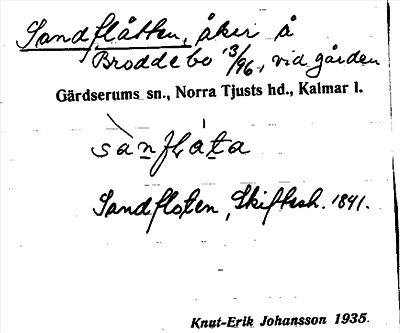 Sandflåtten, åker å
Broddebo 13/96, vid gården
Gärdserums sn., Norra Tjusts hd., Kalmar l.
sànflá̀ta
Sandfloten, Skiftesh. 1841.
Knut-Erik Johansson 1935.